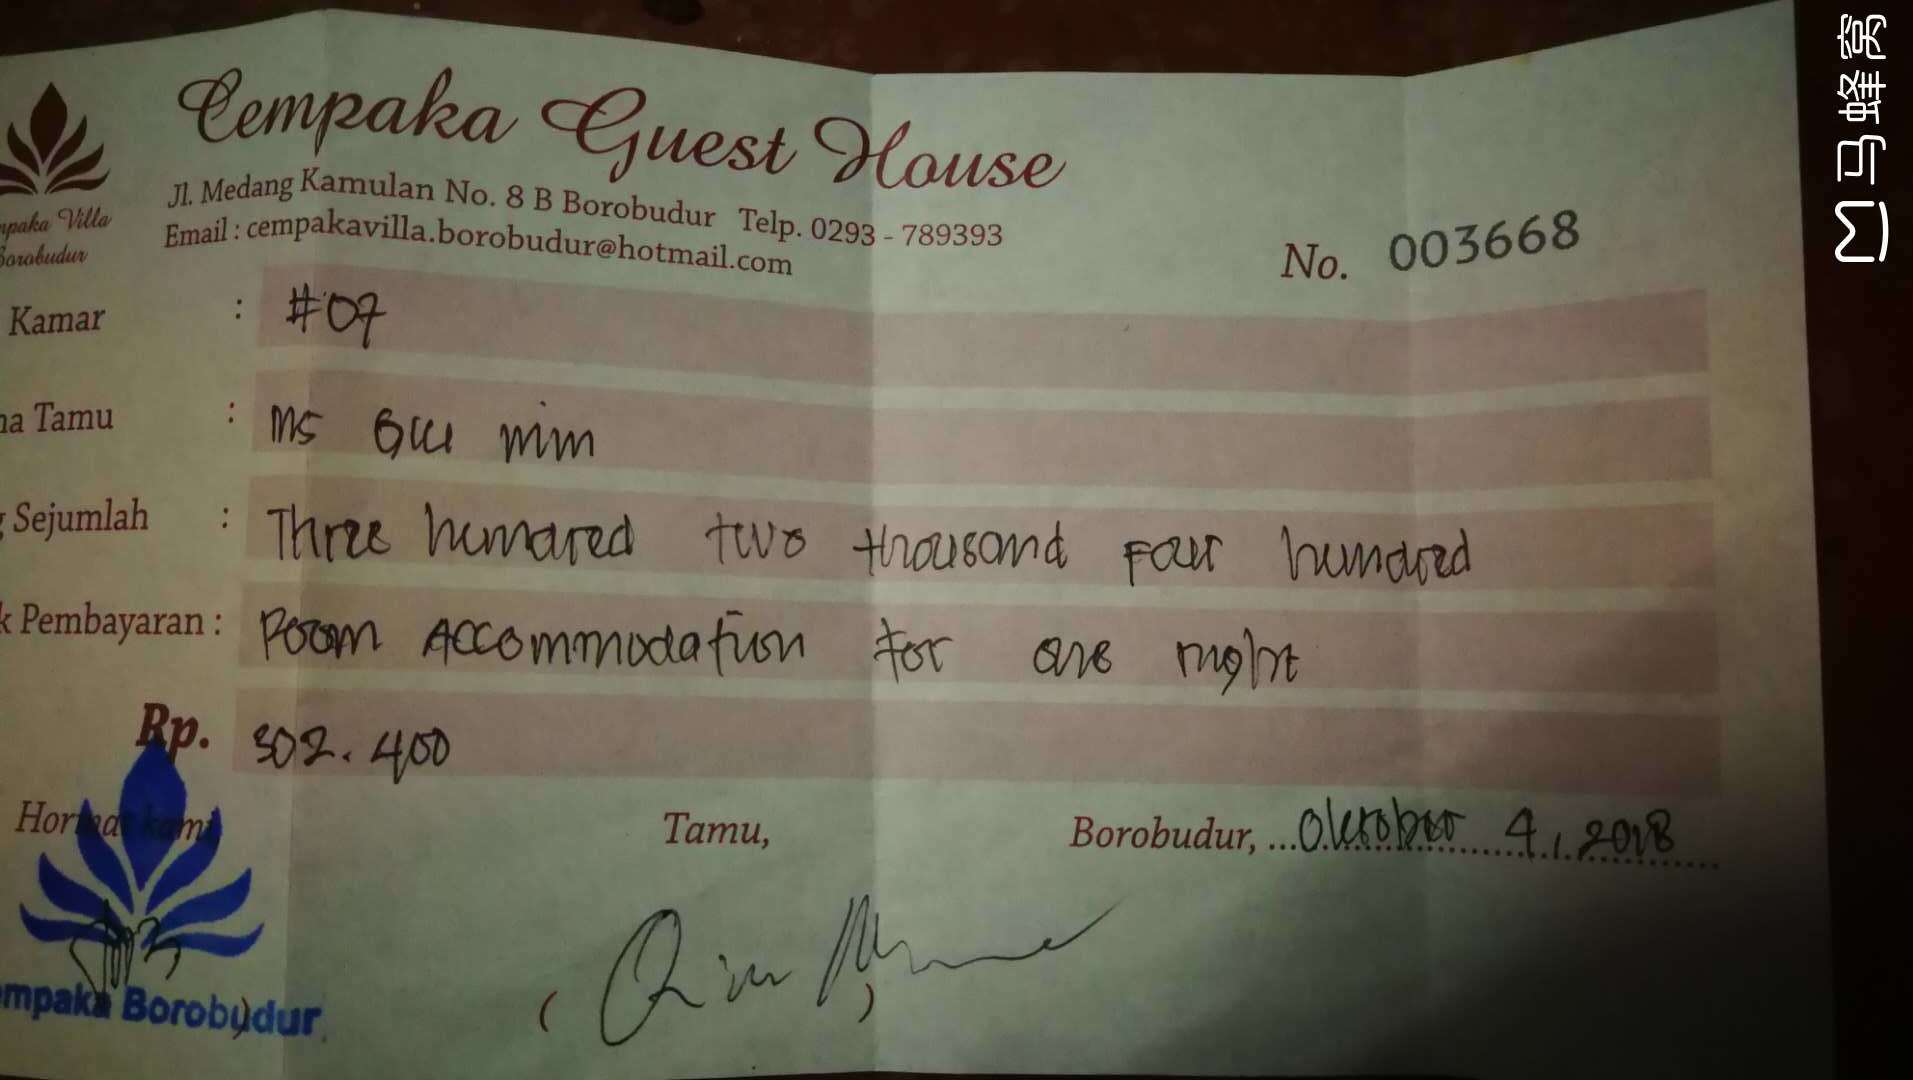 Cempaka Guest House
Jl. Medang Kamulan No. 8 B Borobudur Telp. 0293 - 789393
Email : cempakavilla.borobudur@hotmail.com
mpaka Villa
Borobudur
No. 003668
Kamar : #07
na Tamu : Ms mim
g Sejumlah : Three hundred two thousand Four hundred
k Pembayaran : Room Accommodation for one night
Rp. 302.400
Hormat kami
Tamu,
Borobudur, ... Oktober 4, 2018
empaka Borobudur
( )
马蜂窝